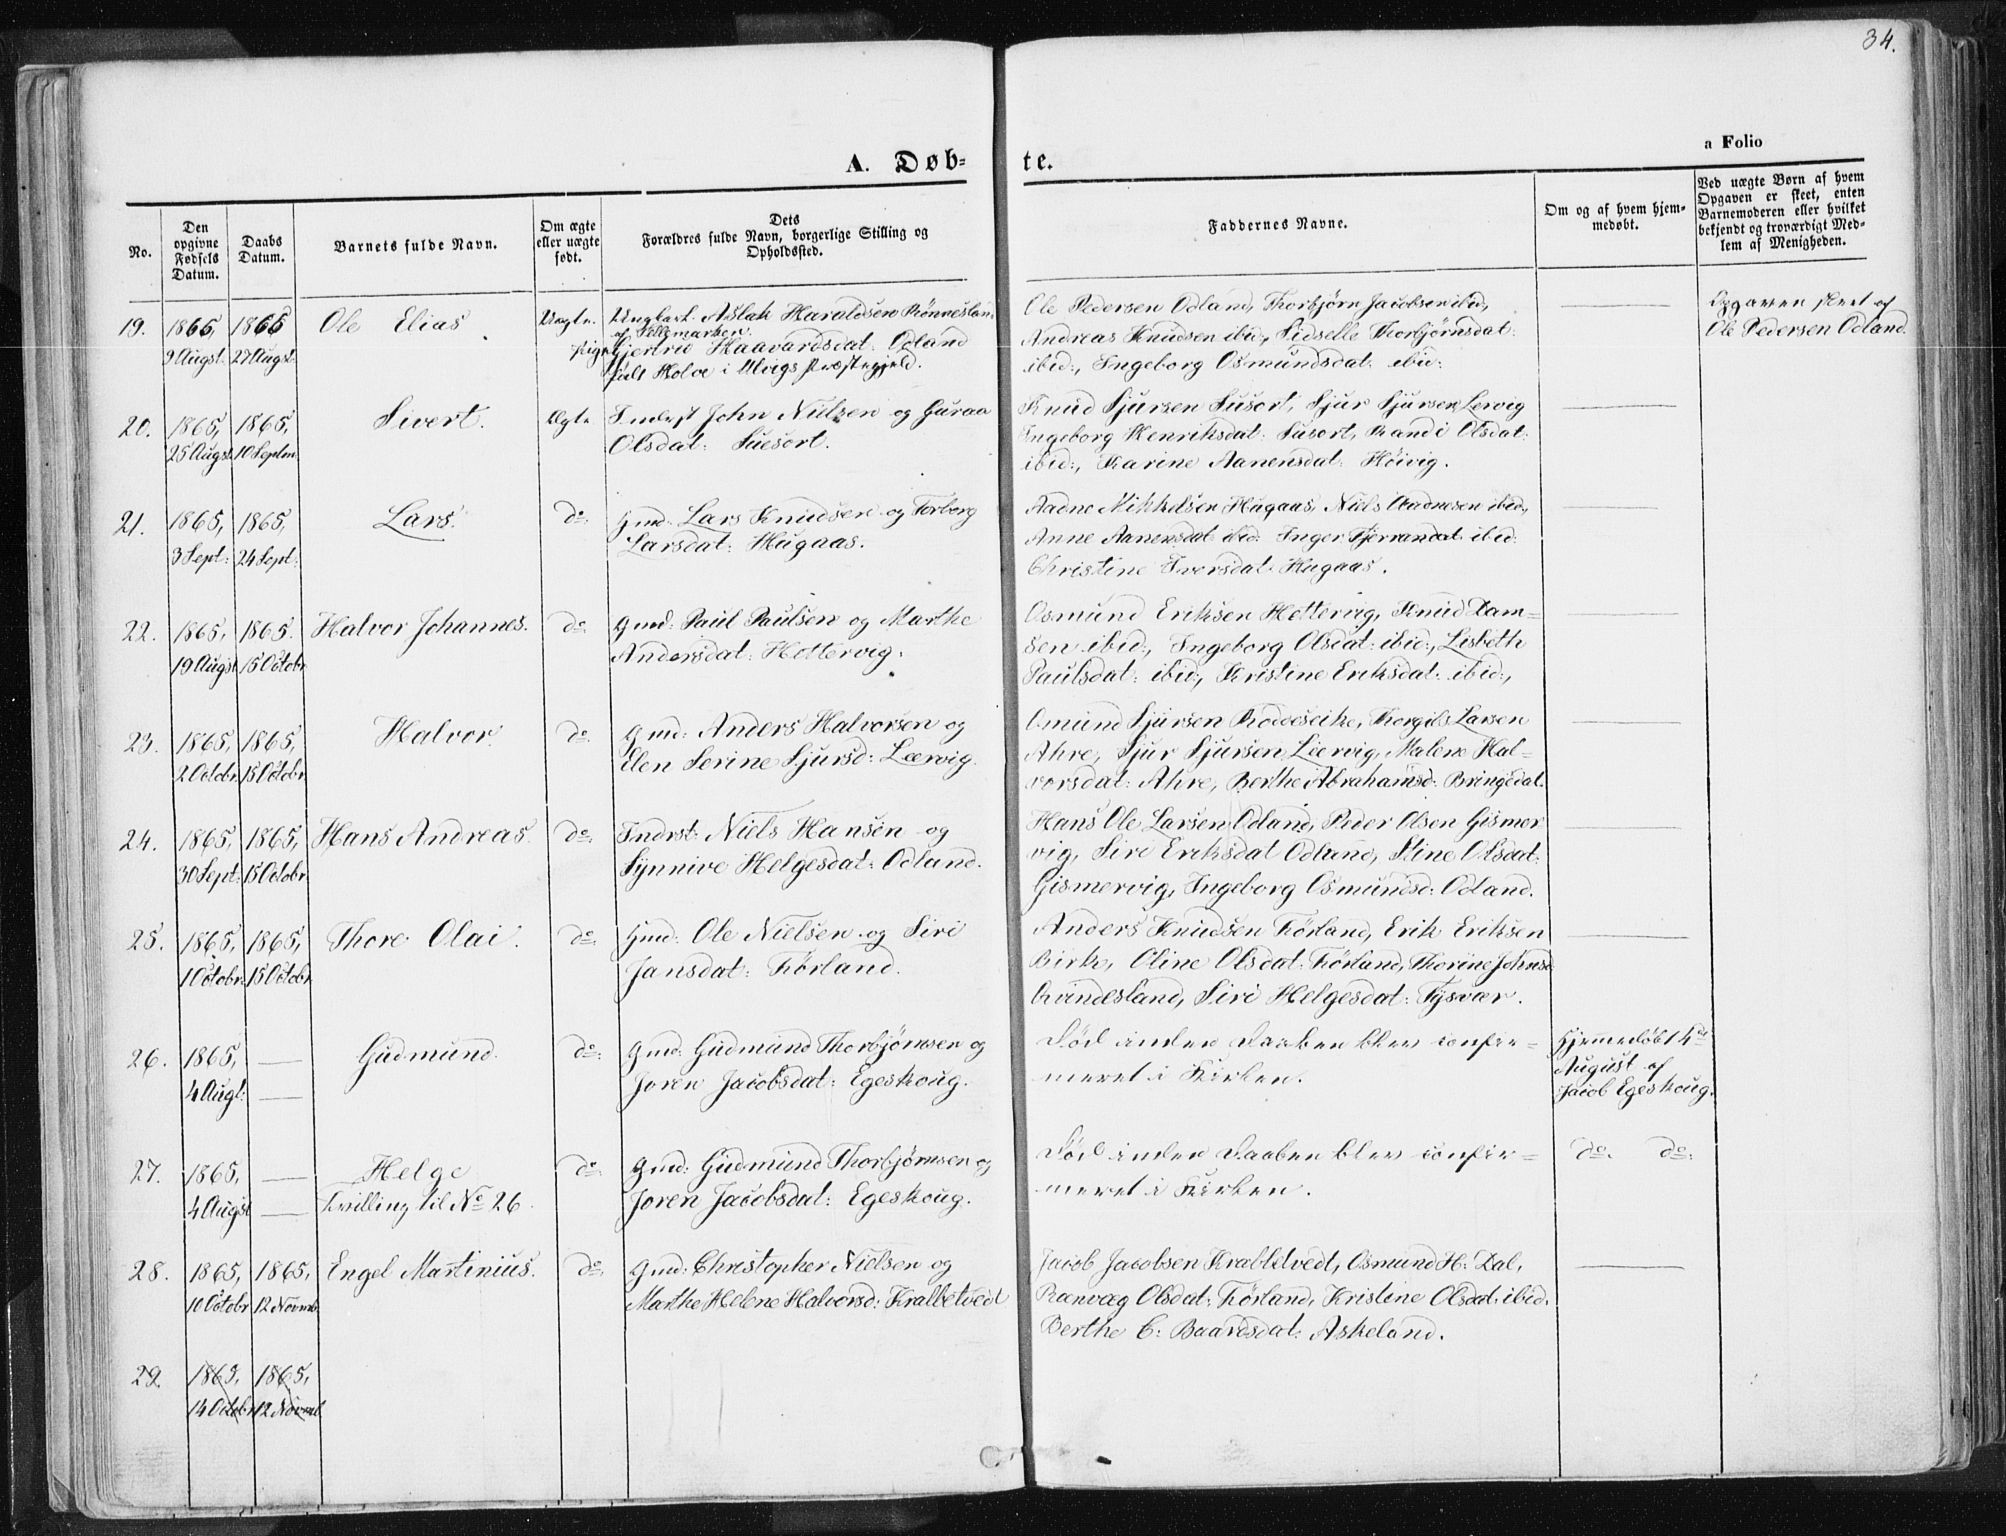 34.
a Folio
A. Døbte.
No.
Den opgivne Fødsels Datum.
Daabs Datum.
Barnets fulde Navn.
Om ægte eller uægte født.
Dets Forældres fulde Navn, borgerlige Stilling og Opholdssted.
Faddernes Navne.
Om og af hvem hjemmedøbt.
Ved uægte Børn af hvem Opgaven er skeet, enten Barnemoderen eller hvilket bekjendt og troværdigt Medlem af Menigheden.
19. 1865, 1865 Ole Elias Uægte. Ungkarl: Aslak Haraldsen Rönnesland
af Tellemarken.
9 Augst: 27 Augst: Pige Gjertrid Haavardsdat: Odland
født Holve i Ulvigs Præstegjeld.
Ole Pedersen Odland, Thorbjörn Jacobsen ibid,
Andreas Knudsen ibid, Sidselle Thorbjörnsdat:
ibid:, Ingeborg Osmundsdat: ibid:
Opgaven skeet af
Ole Pedersen Odland.
20. 1865, 1865, Sivert. Ægte Inderst John Nielsen og Guraa
25 Augst. 10 Septm. Olsdat: Suesort.
Knud Sjursen Susort, Sjur Sjursen Lervig
Ingeborg Henriksdat: Susort, Randi Olsdat:
ibid:, Karine Aanensdat: Höivig.
21. 1865, 1865, Lars. do. Gmd: Lars Knudsen og Torborg
3 Sept: 24 Sept: Larsdat: Hugaas.
Aadne Mikkelsen Hugaas, Niels Aadnesen ibid,
Anne Aanensdat ibid: Inger ibid:
Christine Iversdat: Hugaas.
22. 1865, 1865. Halvor Johannes. do. Gmd: Paul Paulsen og Marthe
19 Augst 15 Octobr Andersdat: Hettervig.
Osmund Eriksen Hettervig, Knud Dam=
sen ibid:, Ingeborg Olsdat: ibid:, Lisbeth
Paulsdat: ibid:, Kristine Eriksdat: ibid:,
23. 1865, 1865, Halvor. do. Gmd: Anders Halvorsen og
2 Octobr. 15 Octobr. Elen Serine Sjursd: Lærvig.
Osmund Sjursen Roddeseike, Thorgils Larsen
Ahre, Sjur Sjursen Lærvig, Malene Hal=
vorsdat: Ahre, Berthe Abrahamsd: Bringedal.
24. 1865, 1865, Hans Andreas. do. Indrst: Niels Hansen og
30 Sept: 15 Octobr. Synnive Helgesdat: Odland.
Hans Ole Larsen Odland, Peder Olsen Gismer
vig, Siri Eriksdat Odland, Stine Olsdat:
Gismervig, Ingeborg Osmundsd: Odland.
25. 1865, 1865, Thore Olai. do. Gmd: Ole Nielsen og Siri
1 Octobr. 15 Octobr. Jansdat: Förland.
Anders Knudsen Förland, Erik Eriksen
Birk, Oline Olsdat: Förland, Thorine Johnsd
Qvindesland, Siri Helgesdat: Tysvær.
26. 1865, Gudmund. do: Gmd: Gudmund Thorbjörnsen og
4 Augt: Joren Jacobsdat: Egeskoug.
Död inden Daaben blev confir=
meret i Kirken.
Hjemmedöbt 4de
August af
Jacob Egeskoug.
27. 1865, Helge do: Gmd: Gudmund Thorbjörnsen og
4 Augst Tvilling til No 26. Joren Jacobsdat: Egeskoug.
Död inden Daaben blev confir=
meret i Kirken.
do. do:
28. 1865, 1865, Engel Martinius. do. Gmd: Christopher Nielsen og
10 Octobr 12 Novmb. Marthe Helene Halvorsd: Krabbetvedt
Jacob Jacobsen Krabbetvedt, Osmund H: Dal,
Rænvæg Olsdat: Förland, Kristine Olsdat: ibid.
Berthe C: Baardsdat: Askeland.
29. 1865, 1865,
14 Octobr. 12 Novmb.